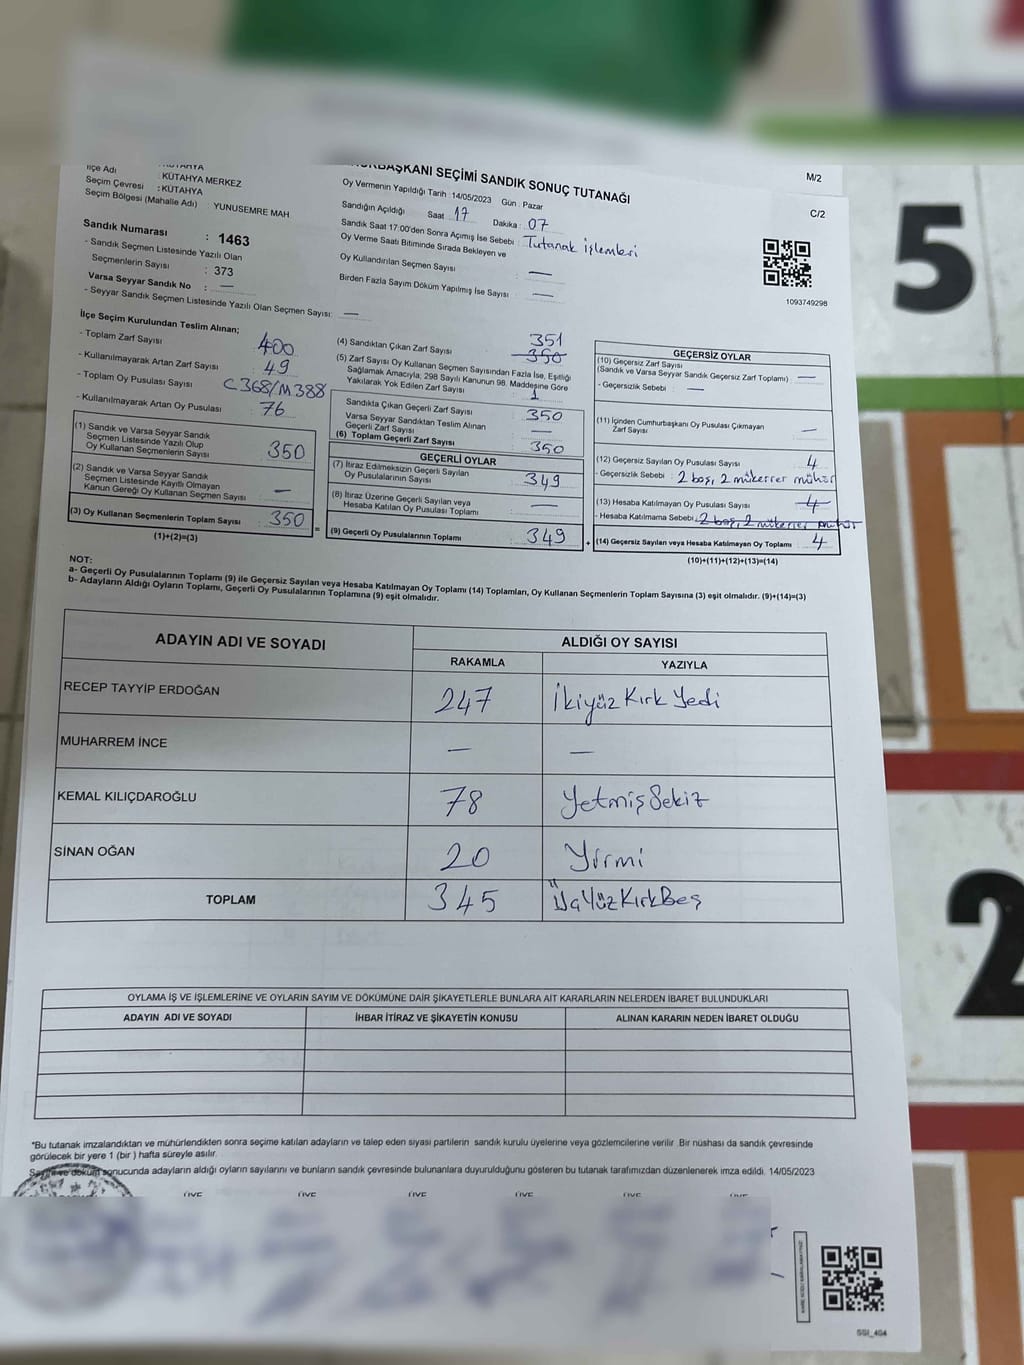 KÜTAHYA
İlçe Adı : KÜTAHYA MERKEZ
Seçim Çevresi : KÜTAHYA
Seçim Bölgesi (Mahalle Adı) YUNUSEMRE MAH.
Sandık Numarası : 1463
- Sandık Seçmen Listesinde Yazılı Olan
Seçmenlerin Sayısı : 373
Varsa Seyyar Sandık No : —
- Seyyar Sandık Seçmen Listesinde Yazılı Olan Seçmen Sayısı: —
SEÇİMİ SANDIK SONUÇ TUTANAĞI
Oy Vermenin Yapıldığı Tarih : 14/05/2023 Gün : Pazar
Sandığın Açıldığı Saat 17 Dakika : 07
Sandık Saat 17:00'den Sonra Açımış İse Sebebi : Tutanak işlemleri
Oy Verme Saati Bitiminde Sırada Bekleyen ve
Oy Kullandırılan Seçmen Sayısı : —
Birden Fazla Sayım Döküm Yapılmış İse Sayısı : —
M/2
C/2
1093749298
İlçe Seçim Kurulundan Teslim Alınan;
- Toplam Zarf Sayısı 400
- Kullanılmayarak Artan Zarf Sayısı 49
- Toplam Oy Pusulası Sayısı C368/M388
- Kullanılmayarak Artan Oy Pusulası 76
(1) Sandık ve Varsa Seyyar Sandık
Seçmen Listesinde Yazılı Olup
Oy Kullanan Seçmenlerin Sayısı 350
(2) Sandık ve Varsa Seyyar Sandık
Seçmen Listesinde Kayıtlı Olmayan
Kanun Gereği Oy Kullanan Seçmen Sayısı —
(3) Oy Kullanan Seçmenlerin Toplam Sayısı : 350
(1)+(2)=(3)
351
(4) Sandıktan Çıkan Zarf Sayısı 350
(5) Zarf Sayısı Oy Kullanan Seçmen Sayısından Fazla İse, Eşitliği
Sağlamak Amacıyla, 298 Sayılı Kanunun 98. Maddesine Göre
Yakılarak Yok Edilen Zarf Sayısı : 1
Sandıkta Çıkan Geçerli Zarf Sayısı 350
Varsa Seyyar Sandıktan Teslim Alınan
Geçerli Zarf Sayısı —
(6) Toplam Geçerli Zarf Sayısı 350
GEÇERLİ OYLAR
(7) İtiraz Edilmeksizin Geçerli Sayılan
Oy Pusulalarının Sayısı 349
(8) İtiraz Üzerine Geçerli Sayılan veya
Hesaba Katılan Oy Pusulası Toplamı —
=
(9) Geçerli Oy Pusulalarının Toplamı 349
GEÇERSİZ OYLAR
(10) Geçersiz Zarf Sayısı
(Sandık ve Varsa Seyyar Sandık Geçersiz Zarf Toplamı) —
- Geçersizlik Sebebi : —
(11) İçinden Cumhurbaşkanı Oy Pusulası Çıkmayan
Zarf Sayısı —
(12) Geçersiz Sayılan Oy Pusulası Sayısı 4
- Geçersizlik Sebebi : 2 boş, 2 mükerrer mühür
(13) Hesaba Katılmayan Oy Pusulası Sayısı 4
- Hesaba Katılmama Sebebi : 2 boş, 2 mükerrer mühür
+
(14) Geçersiz Sayılan veya Hesaba Katılmayan Oy Toplamı 4
(10)+(11)+(12)+(13)=(14)
NOT:
a- Geçerli Oy Pusulalarının Toplamı (9) ile Geçersiz Sayılan veya Hesaba Katılmayan Oy Toplamı (14) Toplamları, Oy Kullanan Seçmenlerin Toplam Sayısına (3) eşit olmalıdır. (9)+(14)=(3)
b- Adayların Aldığı Oyların Toplamı, Geçerli Oy Pusulalarının Toplamına (9) eşit olmalıdır.
ADAYIN ADI VE SOYADI ALDIĞI OY SAYISI
RAKAMLA YAZIYLA
RECEP TAYYİP ERDOĞAN 247 İkiyüz Kırk Yedi
MUHARREM İNCE — —
KEMAL KILIÇDAROĞLU 78 Yetmiş Sekiz
SİNAN OĞAN 20 Yirmi
TOPLAM 345 Üçyüz Kırk Beş
OYLAMA İŞ VE İŞLEMLERİNE VE OYLARIN SAYIM VE DÖKÜMÜNE DAİR ŞİKAYETLERLE BUNLARA AİT KARARLARIN NELERDEN İBARET BULUNDUKLARI
ADAYIN ADI VE SOYADI İHBAR İTİRAZ VE ŞİKAYETİN KONUSU ALINAN KARARIN NEDEN İBARET OLDUĞU
*Bu tutanak imzalandıktan ve mühürlendikten sonra seçime katılan adayların ve talep eden siyasi partilerin sandık kurulu üyelerine veya gözlemcilerine verilir. Bir nüshası da sandık çevresinde
görülecek bir yere 1 (bir ) hafta süreyle asılır.
Sayım ve döküm sonucunda adayların aldığı oyların sayılarını ve bunların sandık çevresinde bulunanlara duyurulduğunu gösteren bu tutanak tarafımızdan düzenlenerek imza edildi. 14/05/2023
ÜYE ÜYE ÜYE ÜYE ÜYE ÜYE
SSI_404
5
2